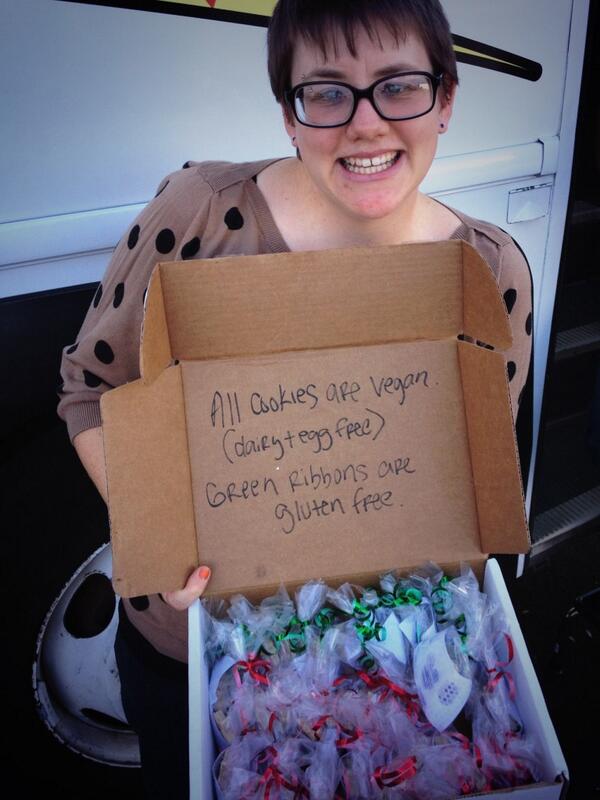 All cookies are vegan.
(dairy + egg free)
Green Ribbons are
gluten free.